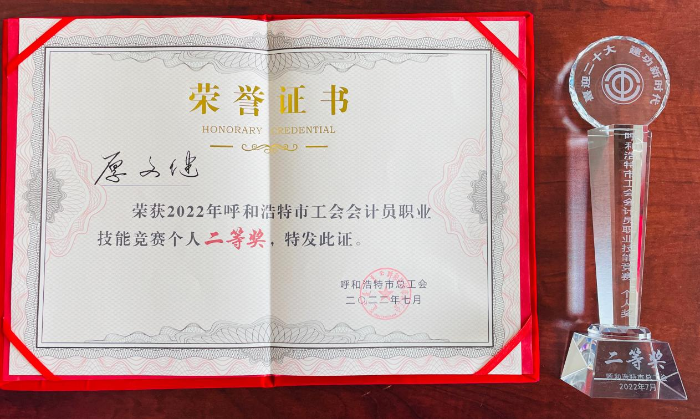 荣誉证书
HONORARY CREDENTIAL
荣获2022年呼和浩特市工会会计员职业
技能竞赛个人二等奖，特发此证。
呼和浩特市总工会
二〇二二年七月
喜迎二十大 建功新时代
呼和浩特市工会会计员职业技能竞赛 个人奖
二等奖
呼和浩特市总工会
2022年7月